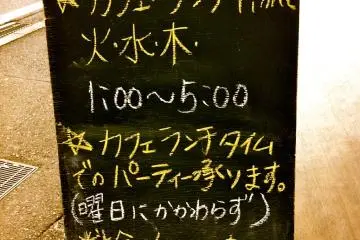 ☆カフェ・ランチtime
火・水・木・
1:00〜5:00
☆カフェランチタイム
でのパーティー承ります。
(曜日にかかわらず)